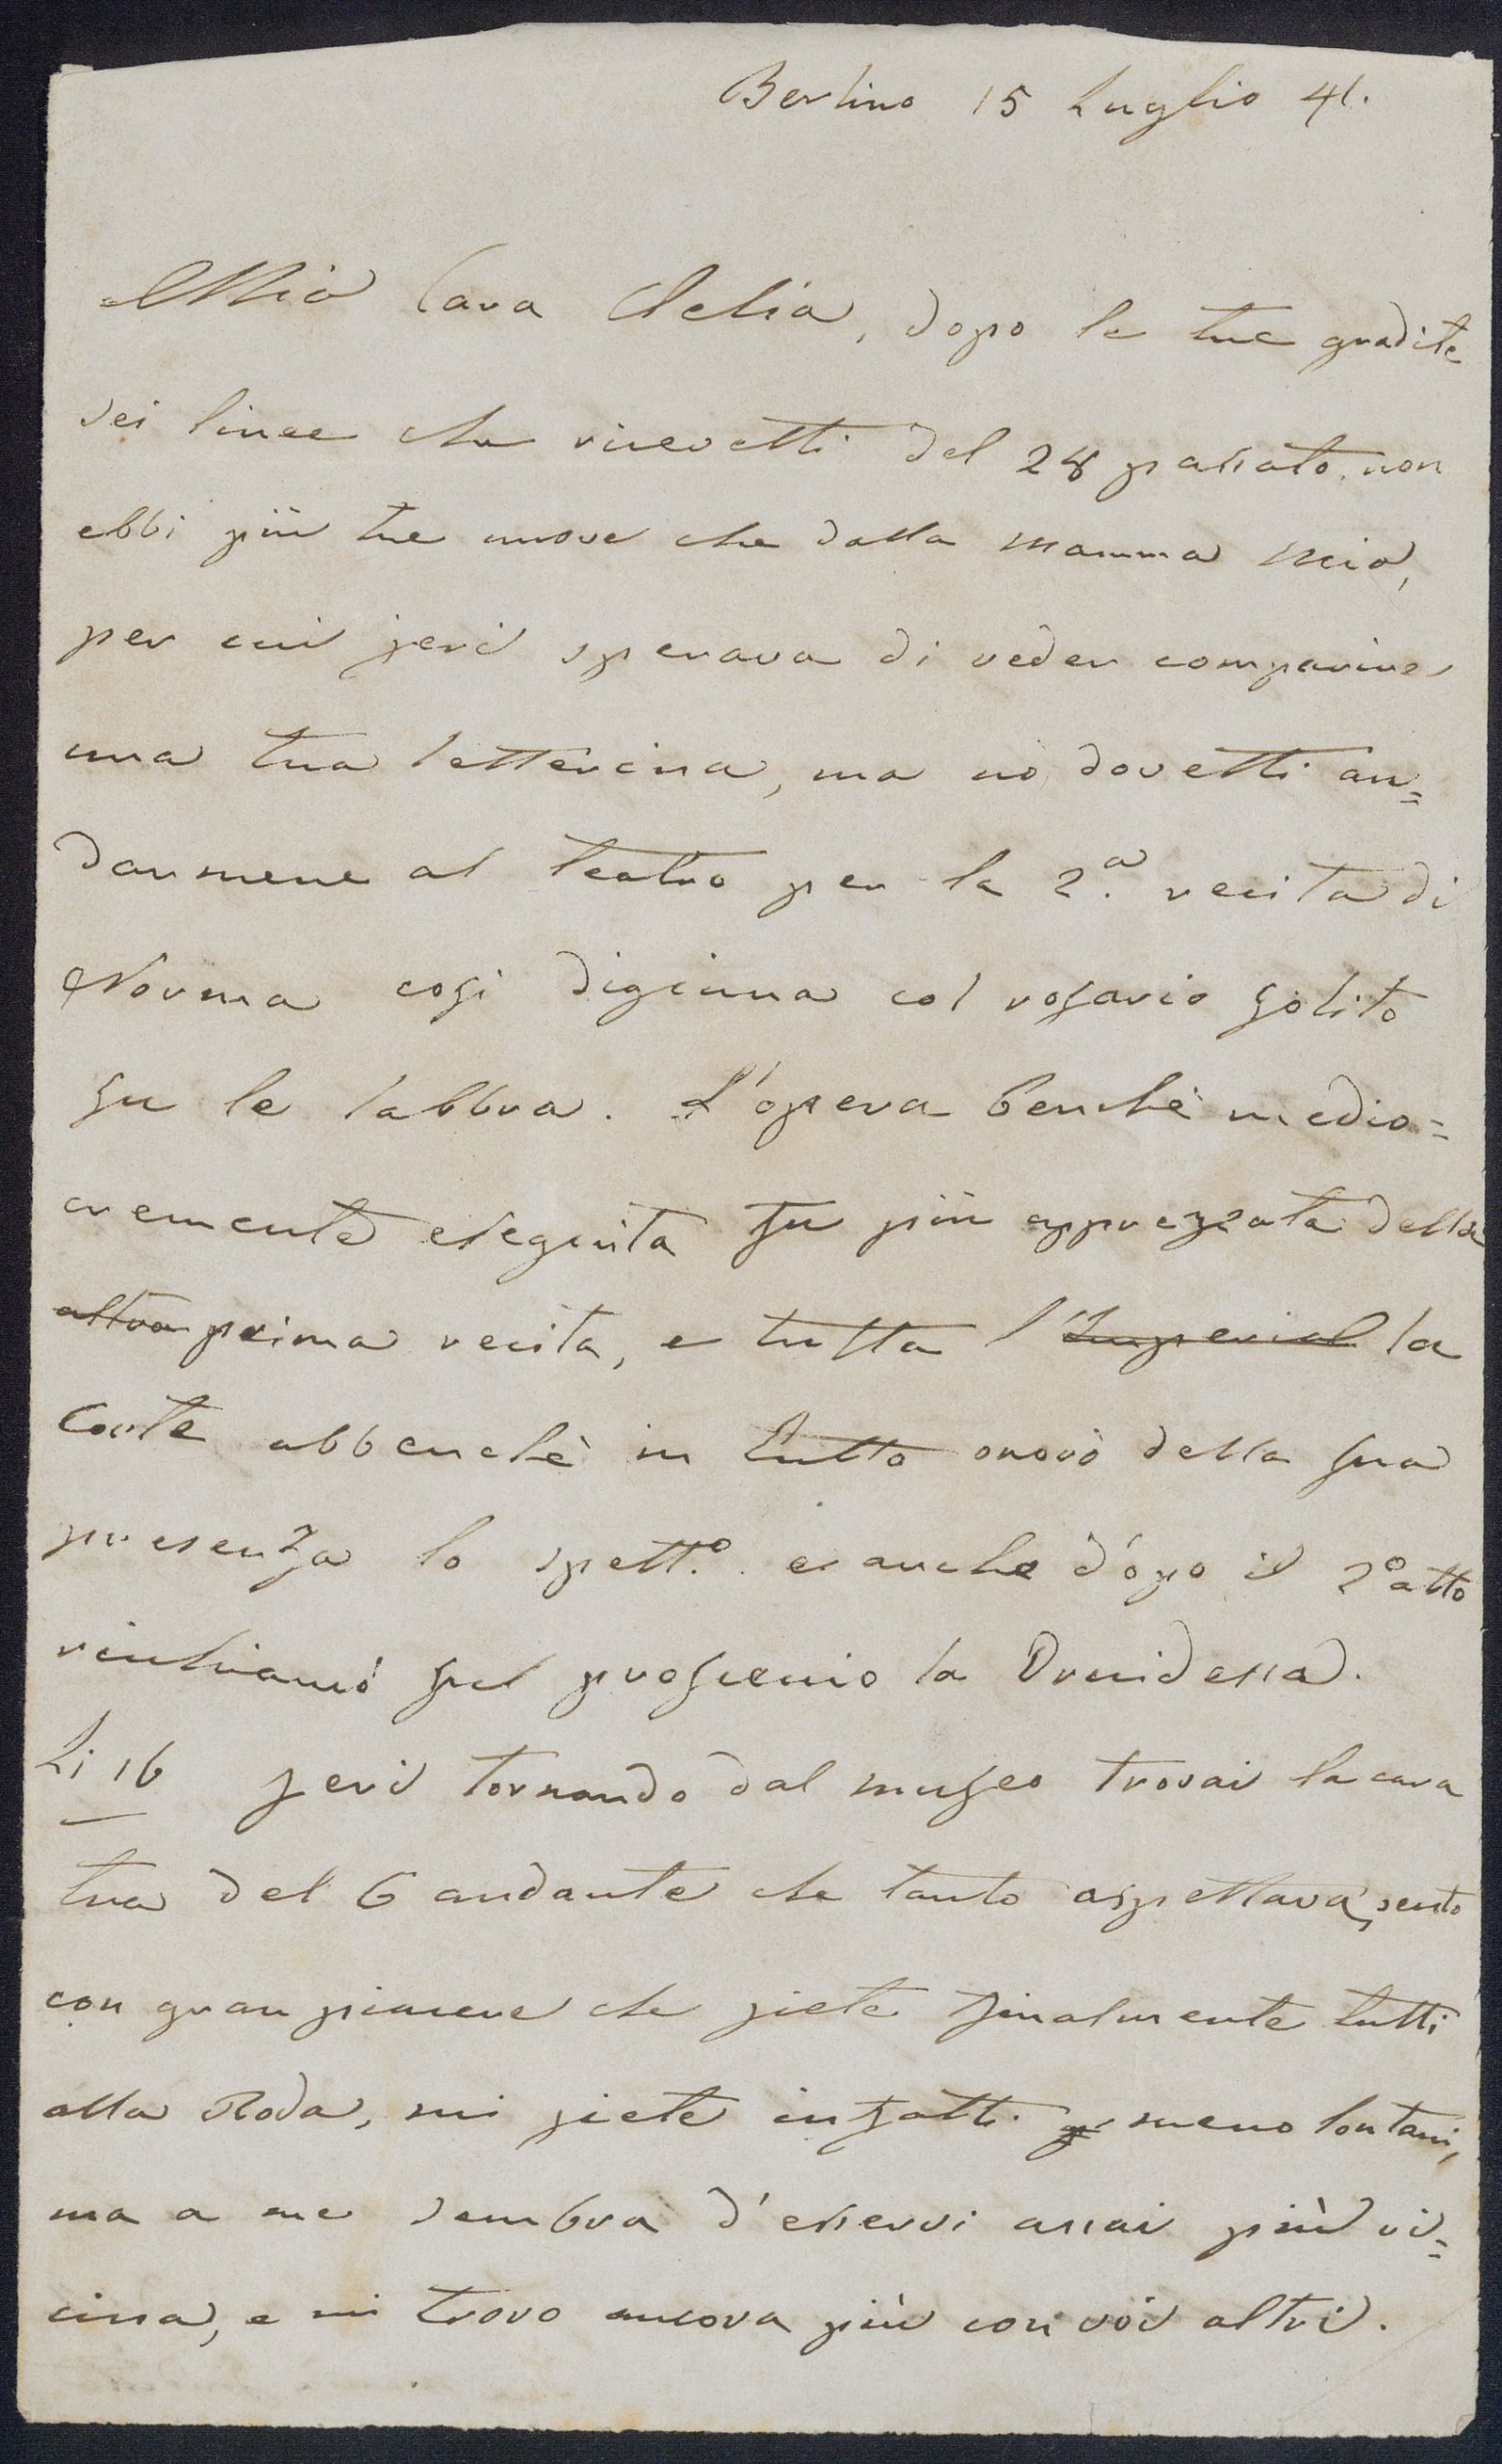 Berlino 15 Luglio 41.
Mia Cara Clelia, dopo le tue gradite
sei linee che ricevetti del 28 passato, non
ebbi più tue nuove che dalla mamma mia,
per cui jeri sperava di veder comparire
una tua letterina, ma nò dovetti an=
darmene al teatro per la 2.a recita di
Norma così digiuna col rosario solito
su le labbra. L'opera benchè medio=
cremente eseguita fu più apprezzata della
altra prima recita, e tutta l'Imperial la
Corte abbenchè in lutto onorò della sua
presenza lo spett.o e anche dopo il 2o atto
richiamò sul proscenio la Druidessa.
Li 16 Jeri tornando dal museo trovai la cara
tua del 6 andante che tanto aspettava, sento
con gran piacere che siete finalmente tutti
alla Roda, mi siete infatti meno lontani,
ma a me sembra d'esservi assai più vi=
cina, e mi trovo ancora più con voi altri.